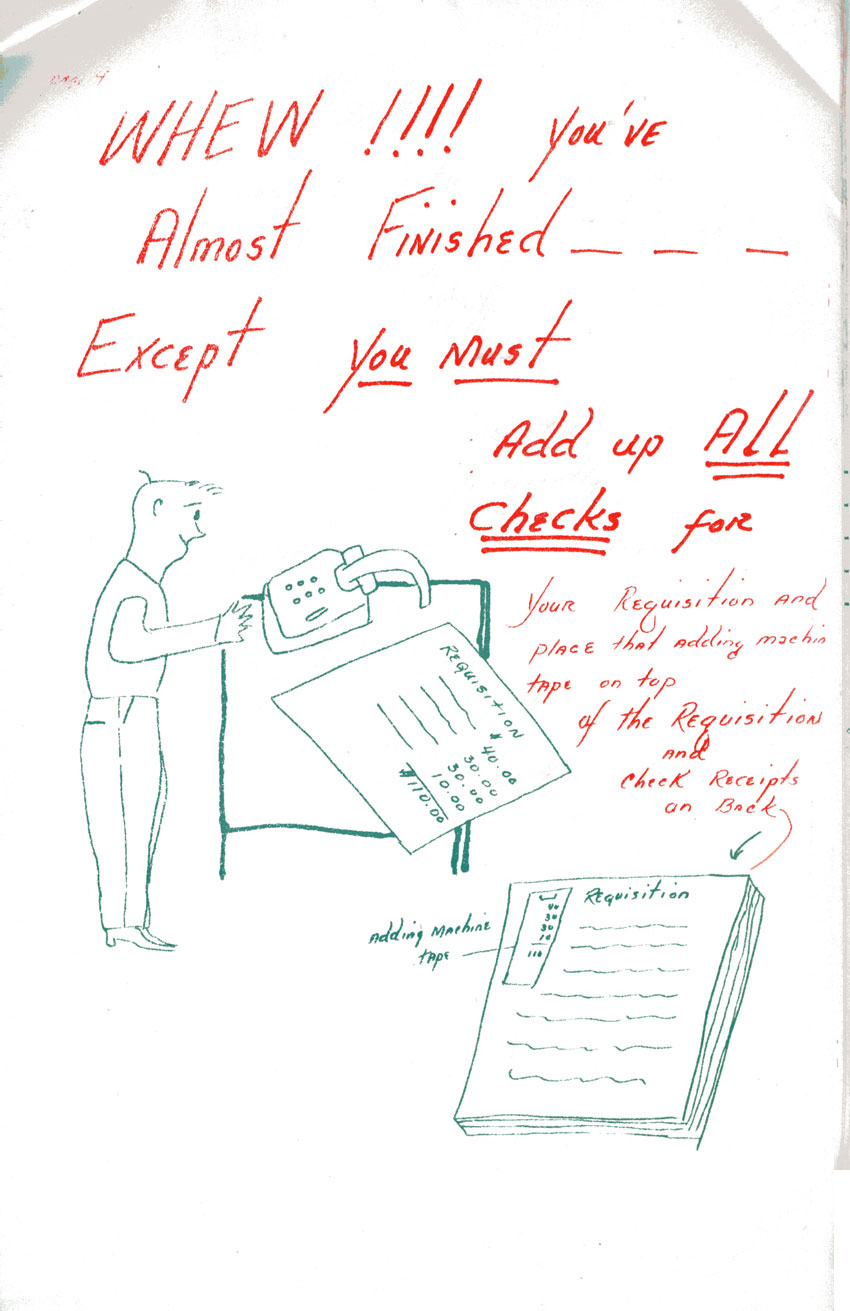 page 4
WHEW !!!! You've
Almost Finished _ _ _
Except you Must
Add up All
Checks for
Your Requisition and
place that adding machin
tape on top
of the Requisition
and
Check Receipts
on Back
REQUISITION
$ 40.00
30.00
30.00
10.00
$110.00
Requisition
40
30
30
10
110
Adding Machine
tape